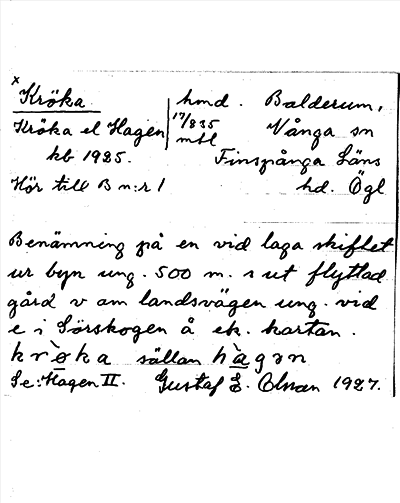 x
Kröka hmd. Balderum,
Kröka el Hagen 17/835 mtl Vånga sn
kb 1925. Finspånga Läns
Hör till B n:r 1 hd. Ögl
Benämning på en vid laga skiftet
ur byn ung. 500 m. s ut flyttad
gård v om landsvägen ung. vid
e i Sörskogen å ek. kartan.
krö̀ka sällan hàgən
Se: Hagen II. Gustaf E. Olsson 1927.